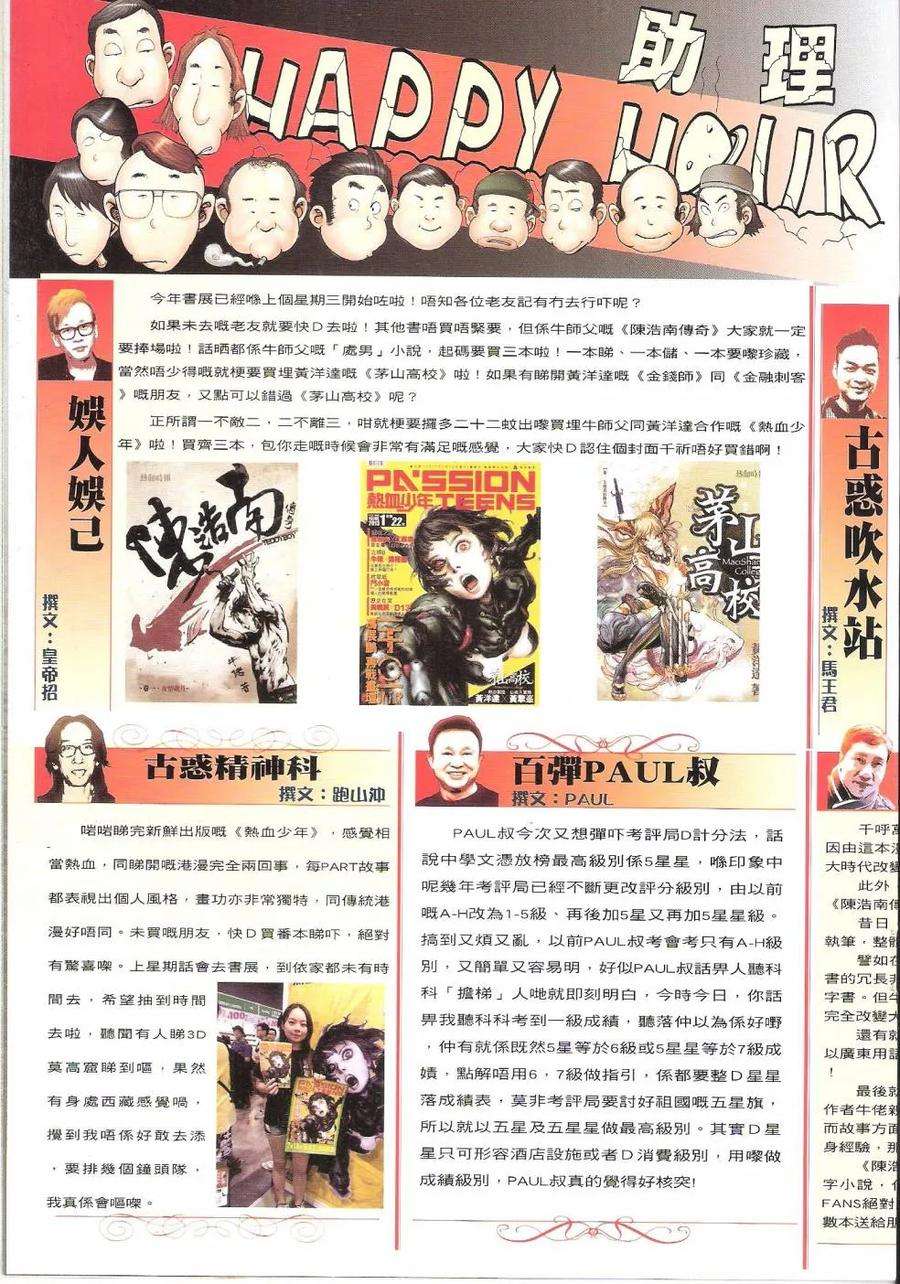 助理
HAPPY HOUR
娛人娛己
撰文：皇帝招
今年書展已經喺上個星期三開始咗啦！唔知各位老友記有冇去行吓呢？
如果未去嘅老友就要快D去啦！其他書唔買唔緊要，但係牛師父嘅《陳浩南傳奇》大家就一定
要捧場啦！話晒都係牛師父嘅「處男」小說，起碼要買三本啦！一本睇、一本儲、一本要嚟珍藏，
當然唔少得嘅就梗要買埋黃洋達嘅《茅山高校》啦！如果有睇開黃洋達嘅《金錢師》同《金融刺客
》嘅朋友，又點可以錯過《茅山高校》呢？
正所謂一不敵二，二不離三，咁就梗要攞多二十二蚊出嚟買埋牛師父同黃洋達合作嘅《熱血少
年》啦！買齊三本，包你走嘅時候會非常有滿足嘅感覺，大家快D認住個封面千祈唔好買錯啊！
熱血時報
陳浩南
傳奇
TEDDYBOY
牛佬著
PASSION
熱血少年 TEENS
茅山高校
黃洋達 × 黃擎峯
熱血時報
茅山
高校
MaoShan
College
古惑吹水站
撰文：馬王君
古惑精神科
撰文：跑山沖
啱啱睇完新鮮出版嘅《熱血少年》，感覺相
當熱血，同睇開嘅港漫完全兩回事，每PART故事
都表視出個人風格，畫功亦非常獨特，同傳統港
漫好唔同。未買嘅朋友，快D買番本睇吓，絕對
有驚喜㗎。上星期話會去書展，到依家都未有時
間去，希望抽到時間
去啦，聽聞有人睇3D
莫高窟睇到嘔，果然
有身處西藏感覺喎，
攪到我唔係好敢去添
，要排幾個鐘頭隊，
我真係會嘔㗎。
百彈PAUL叔
撰文：PAUL
PAUL叔今次又想彈吓考評局D計分法，話
說中學文憑放榜最高級別係5星星，喺印象中
呢幾年考評局已經不斷更改評分級別，由以前
嘅A-H改為1-5級、再後加5星又再加5星星級。
搞到又煩又亂，以前PAUL叔考會考只有A-H級
別，又簡單又容易明，好似PAUL叔話畀人聽科
科「擔梯」人哋就即刻明白，今時今日，你話
畀我聽科科考到一級成績，聽落仲以為係好嘢
，仲有就係既然5星等於6級或5星星等於7級成
績，點解唔用6，7級做指引，係都要整D星星
落成績表，莫非考評局要討好祖國嘅五星旗，
所以就以五星及五星星做最高級別。其實D星
星只可形容酒店設施或者D消費級別，用嚟做
成績級別，PAUL叔真的覺得好核突!
千呼萬
因由這本漫
大時代改變
此外，
《陳浩南傳
昔日，
執筆，整體
譬如在
書的冗長非
字書。但牛
完全改變大
還有就
以廣東用語
！
最後就
作者牛佬親
而故事方面
身經驗，那
《陳浩
字小說，
FANS絕對
數本送給朋